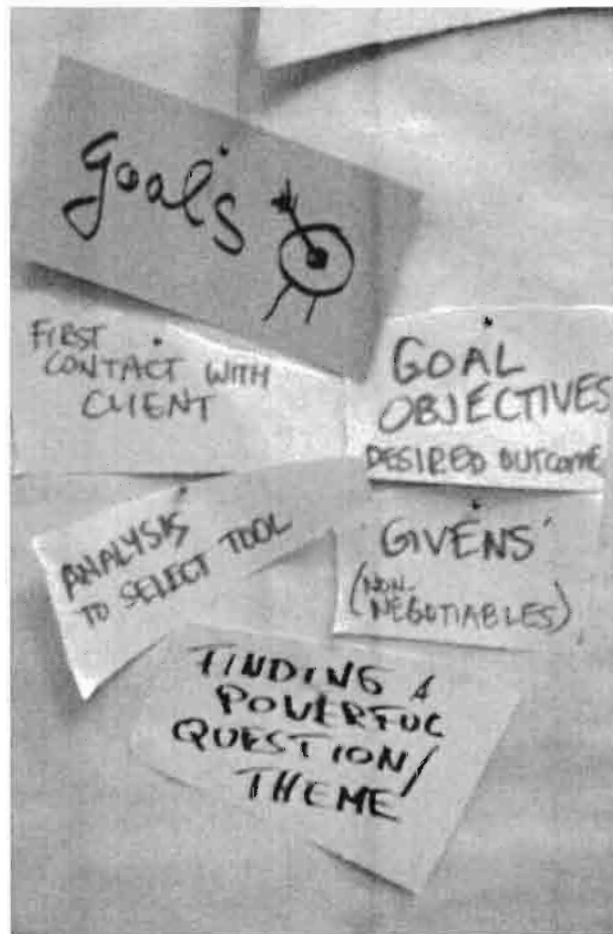 goal's
FIRST
CONTACT WITH
CLIENT
GOAL
OBJECTIVES
DESIRED OUTCOME
ANALYSIS
TO SELECT TOOL
'GIVENS'
(NON-
NEGOTIABLES)
FINDING A
POWERFUL
QUESTION/
THEME